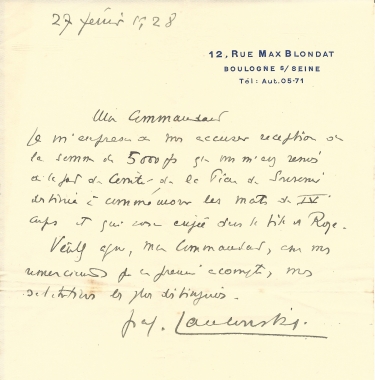 27 février 1928
12, RUE MAX BLONDAT
BOULOGNE S/SEINE
Tél : Aut. 05-71
Mon Commandant
Je m'empresse de vous accuser reception de
la somme de 5000 frs que vous m'avez remis
de la part du Comité de la
destinée à commémorer les morts du IV
corps et qui sera
Veuillez agréer, mon Commandant, avec mes
remerciements pour ce premier acompte, mes
salutations les plus distinguées.